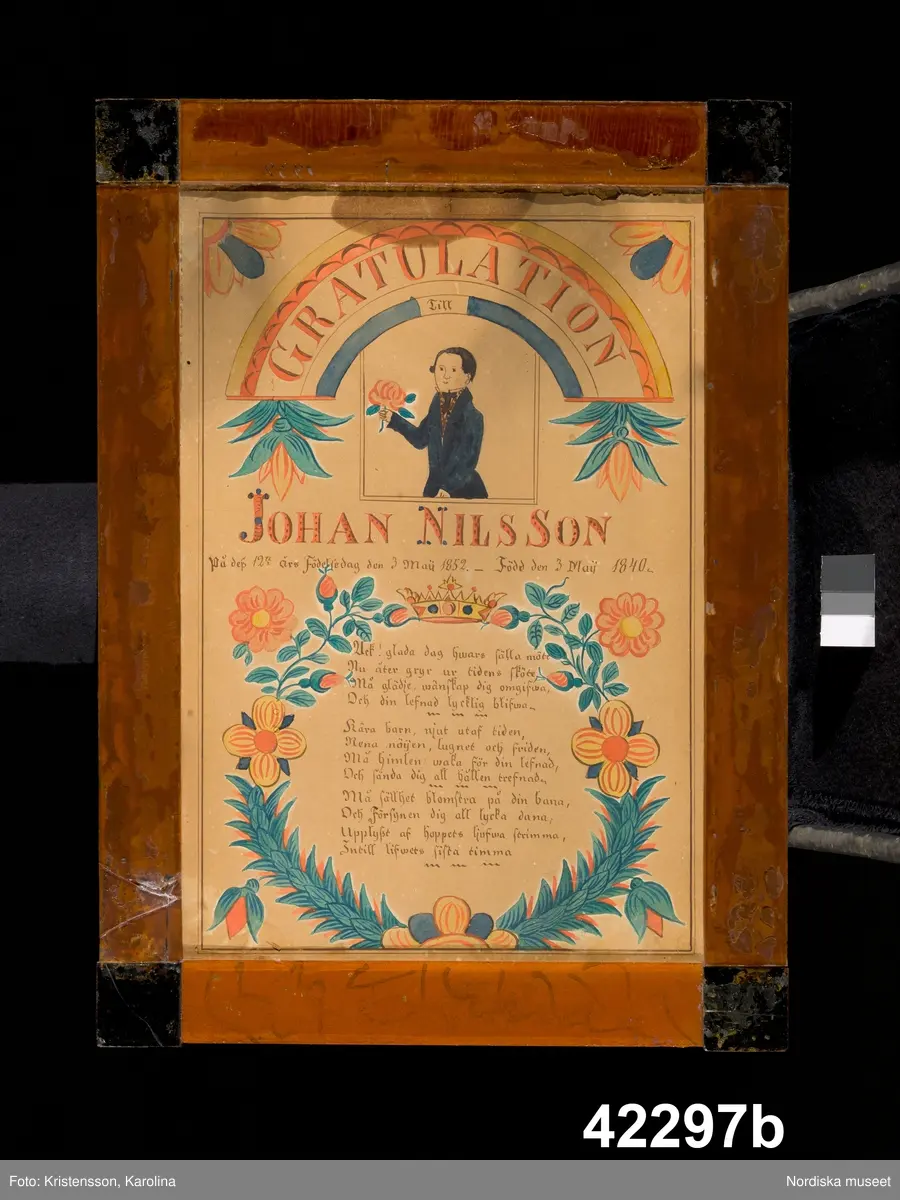 GRATULATION
Till
JOHAN NILSSON
På deß 12te års Födelsedag den 3 Maÿ 1852. – Född den 3 Maÿ 1840.
Ack! glada dag hwars sälla möte
Nu åter gryr ur tidens sköte,
Må glädje, wänskap dig omgifwa,
Och din lefnad lycklig blifwa.
Kära barn, njut utaf tiden,
Rena nöÿen, lugnet och friden,
Må himlen waka för din lefnad,
Och sända dig all sällen trefnad.
Må sällhet blomstra på din bana,
Och Försynen dig all lycka dana,
Upplyst af hoppets ljufwa strimma,
Intill lifwets sista timma
42297b
Foto: Kristensson, Karolina
Nordiska museet